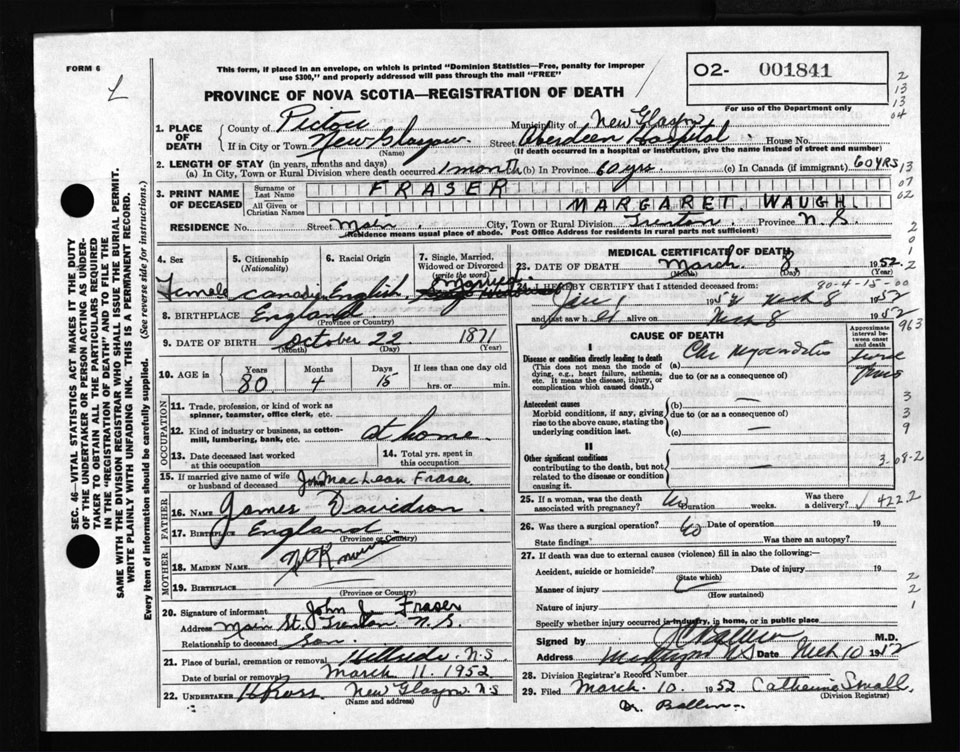 FORM 6
This form, if placed in an envelope, on which is printed "Dominion Statistics—Free, penalty for improper
use $300," and properly addressed will pass through the mail "FREE"
O2- 001841
For use of the Department only
PROVINCE OF NOVA SCOTIA—REGISTRATION OF DEATH
1. PLACE OF DEATH
County of Pictou Municipality of New Glasgow
If in City or Town New Glasgow (Name) Street Aberdeen Hospital House No.
(If death occurred in a hospital or institution, give the name instead of street and number)
2. LENGTH OF STAY (in years, months and days)
(a) In City, Town or Rural Division where death occurred 1 month (b) In Province 60 yrs. (c) In Canada (if immigrant) 60 YRS
3. PRINT NAME OF DECEASED
Surname or Last Name FRASER
All Given or Christian Names MARGARET WAUGH
RESIDENCE No. Street Main City, Town or Rural Division Trenton Province N.S.
(Residence means usual place of abode. Post Office Address for residents in rural parts not sufficient)
4. Sex
Female
5. Citizenship (Nationality)
6. Racial Origin
English
7. Single, Married, Widowed or Divorced (write the word)
Married
8. BIRTHPLACE England
(Province or Country)
9. DATE OF BIRTH October 22 1871
(Month) (Day) (Year)
10. AGE in Years Months Days If less than one day old
80 4 15 hrs. or min.
OCCUPATION
11. Trade, profession, or kind of work as spinner, teamster, office clerk, etc.
12. Kind of industry or business, as cotton-mill, lumbering, bank, etc. at home.
13. Date deceased last worked at this occupation
14. Total yrs. spent in this occupation
15. If married give name of wife or husband of deceased MacLean Fraser
FATHER
16. NAME James Davidson
17. BIRTHPLACE England
(Province or Country)
MOTHER
18. MAIDEN NAME
19. BIRTHPLACE
(Province or Country)
20. Signature of informant John Fraser
Address Main St. Trenton N.S.
Relationship to deceased Son.
21. Place of burial, cremation or removal Hillside N.S.
Date of burial or removal March 11. 1952
22. UNDERTAKER H Ross. New Glasgow N.S
(Name and address)
MEDICAL CERTIFICATE OF DEATH
23. DATE OF DEATH March 8 1952
(Month) (Day)
80-4-15-00
24. I HEREBY CERTIFY that I attended deceased from:
Mch 8 1952
and last saw h alive on Mch 8 1952
CAUSE OF DEATH
Approximate interval between onset and death
I
Disease or condition directly leading to death
(This does not mean the mode of dying, e.g., heart failure, asthenia, etc. It means the disease, injury, or complication which caused death.)
(a) Chr Myocarditis
due to (or as a consequence of)
Antecedent causes
Morbid conditions, if any, giving rise to the above cause, stating the underlying condition last.
(b) —
due to (or as a consequence of)
(c) —
II
Other significant conditions
contributing to the death, but not related to the disease or condition causing it.
25. If a woman, was the death associated with pregnancy? No Duration weeks. Was there a delivery?
26. Was there a surgical operation? No Date of operation 19
State findings Was there an autopsy?
27. If death was due to external causes (violence) fill in also the following:—
Accident, suicide or homicide? Date of injury 19
(State which)
Manner of injury
(How sustained)
Nature of injury
Specify whether injury occurred in industry, in home, or in public place
Signed by M.D.
Address Date Mch 10 19
28. Division Registrar's Record Number
29. Filed March. 10. 1952 Catherine Small.
(Division Registrar)
SEC. 46—VITAL STATISTICS ACT MAKES IT THE DUTY
OF THE UNDERTAKER OR PERSON ACTING AS UNDER-
TAKER TO OBTAIN ALL THE PARTICULARS REQUIRED
IN THE "REGISTRATION OF DEATH" AND TO FILE THE
SAME WITH THE DIVISION REGISTRAR WHO SHALL ISSUE THE BURIAL PERMIT.
WRITE PLAINLY WITH UNFADING INK. THIS IS A PERMANENT RECORD.
Every item of information should be carefully supplied. (See reverse side for instructions.)